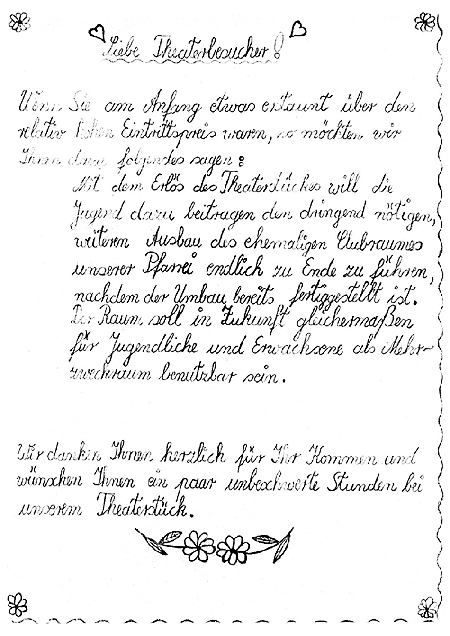 Liebe Theaterbesucher!
Wenn Sie am Anfang etwas erstaunt über den
relativ hohen Eintrittspreis waren, so möchten wir
Ihnen dazu folgendes sagen:
Mit dem Erlös des Theaterstückes will die
Jugend dazu beitragen den dringend nötigen,
weiteren Ausbau des ehemaligen Clubraumes
unserer Pfarrei endlich zu Ende zu führen,
nachdem der Umbau bereits fertiggestellt ist.
Der Raum soll in Zukunft gleichermaßen
für Jugendliche und Erwachsene als Mehr-
zweckraum benutzbar sein.
Wir danken Ihnen herzlich für Ihr Kommen und
wünschen Ihnen ein paar unbeschwerte Stunden bei
unserem Theaterstück.